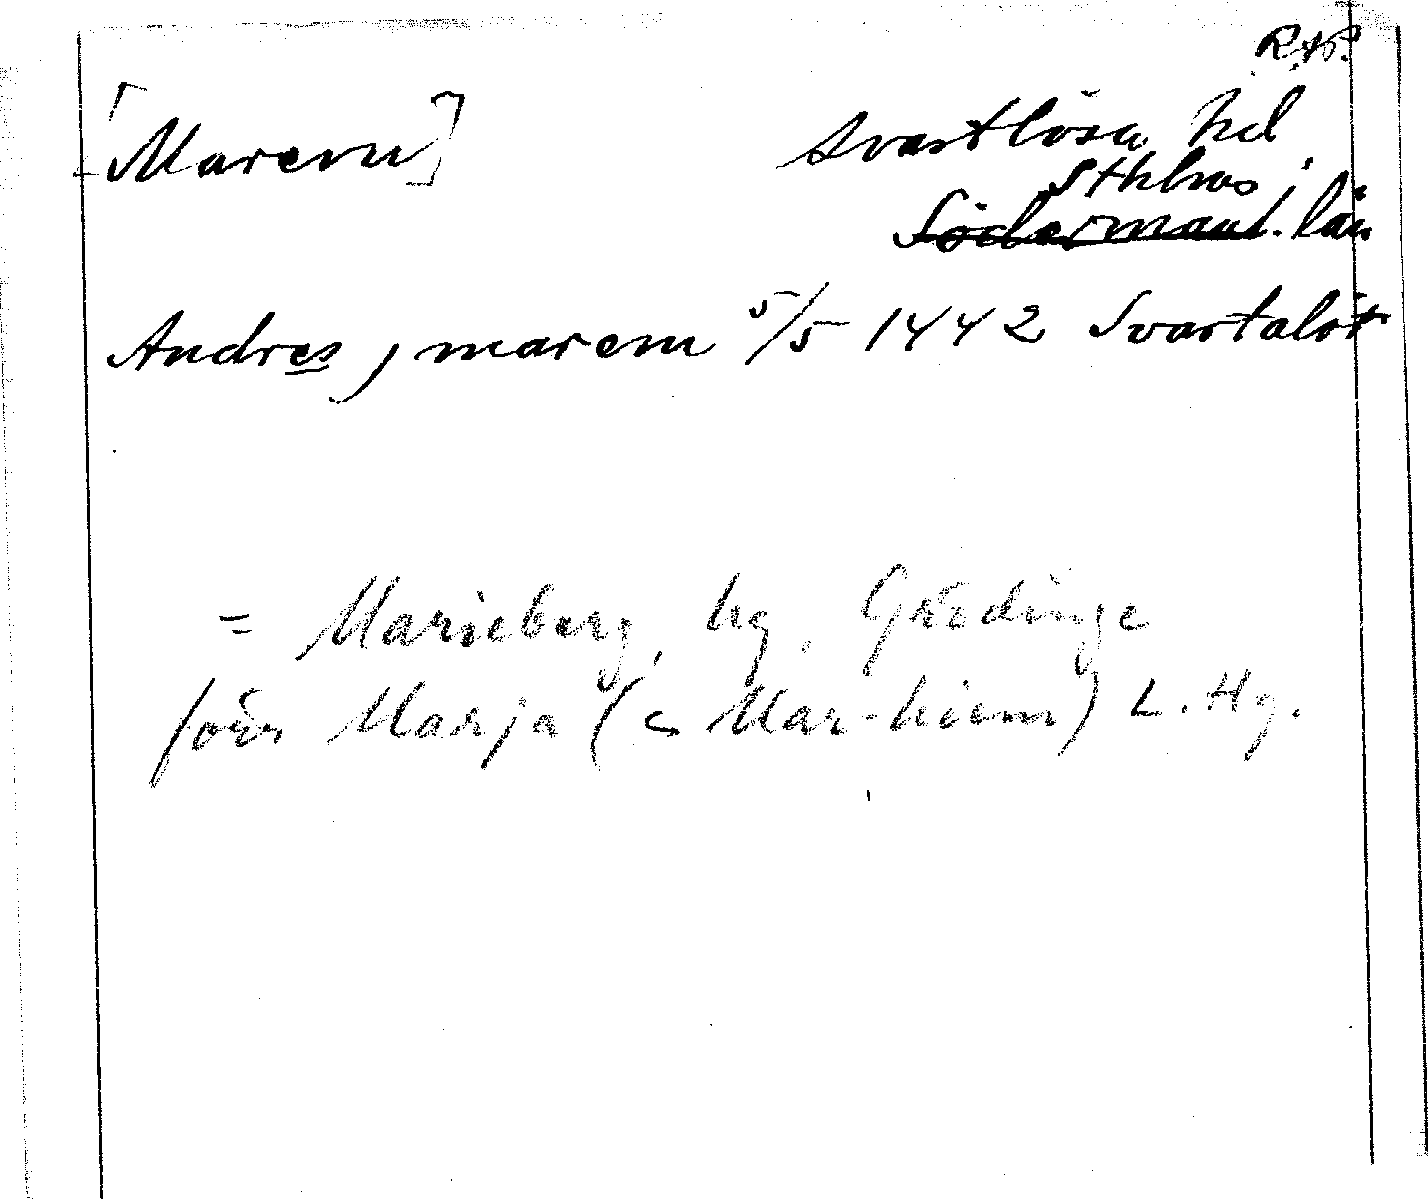 R.A.P.
[Marem] Svartlösa hd
Sthlms
Södermanl. län
Andres j marem 5/5 1442 Svartalöt
= Marieberg, hg, Grödinge
förr Marja (< Mar-hiem) L. Hg.